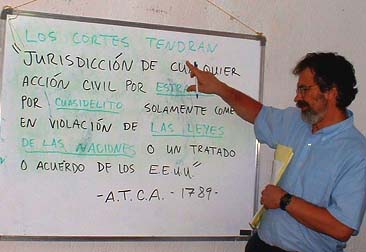 LOS CORTES TENDRAN
"JURISDICCIÓN DE CUALQUIER
ACCIÓN CIVIL POR
POR CUASIDELITO SOLAMENTE COME
EN VIOLACIÓN DE LAS LEYES
DE LAS NACIONES O UN TRATADO
O ACUERDO DE LOS E.E.U.U."
-A.T.C.A. -1789-